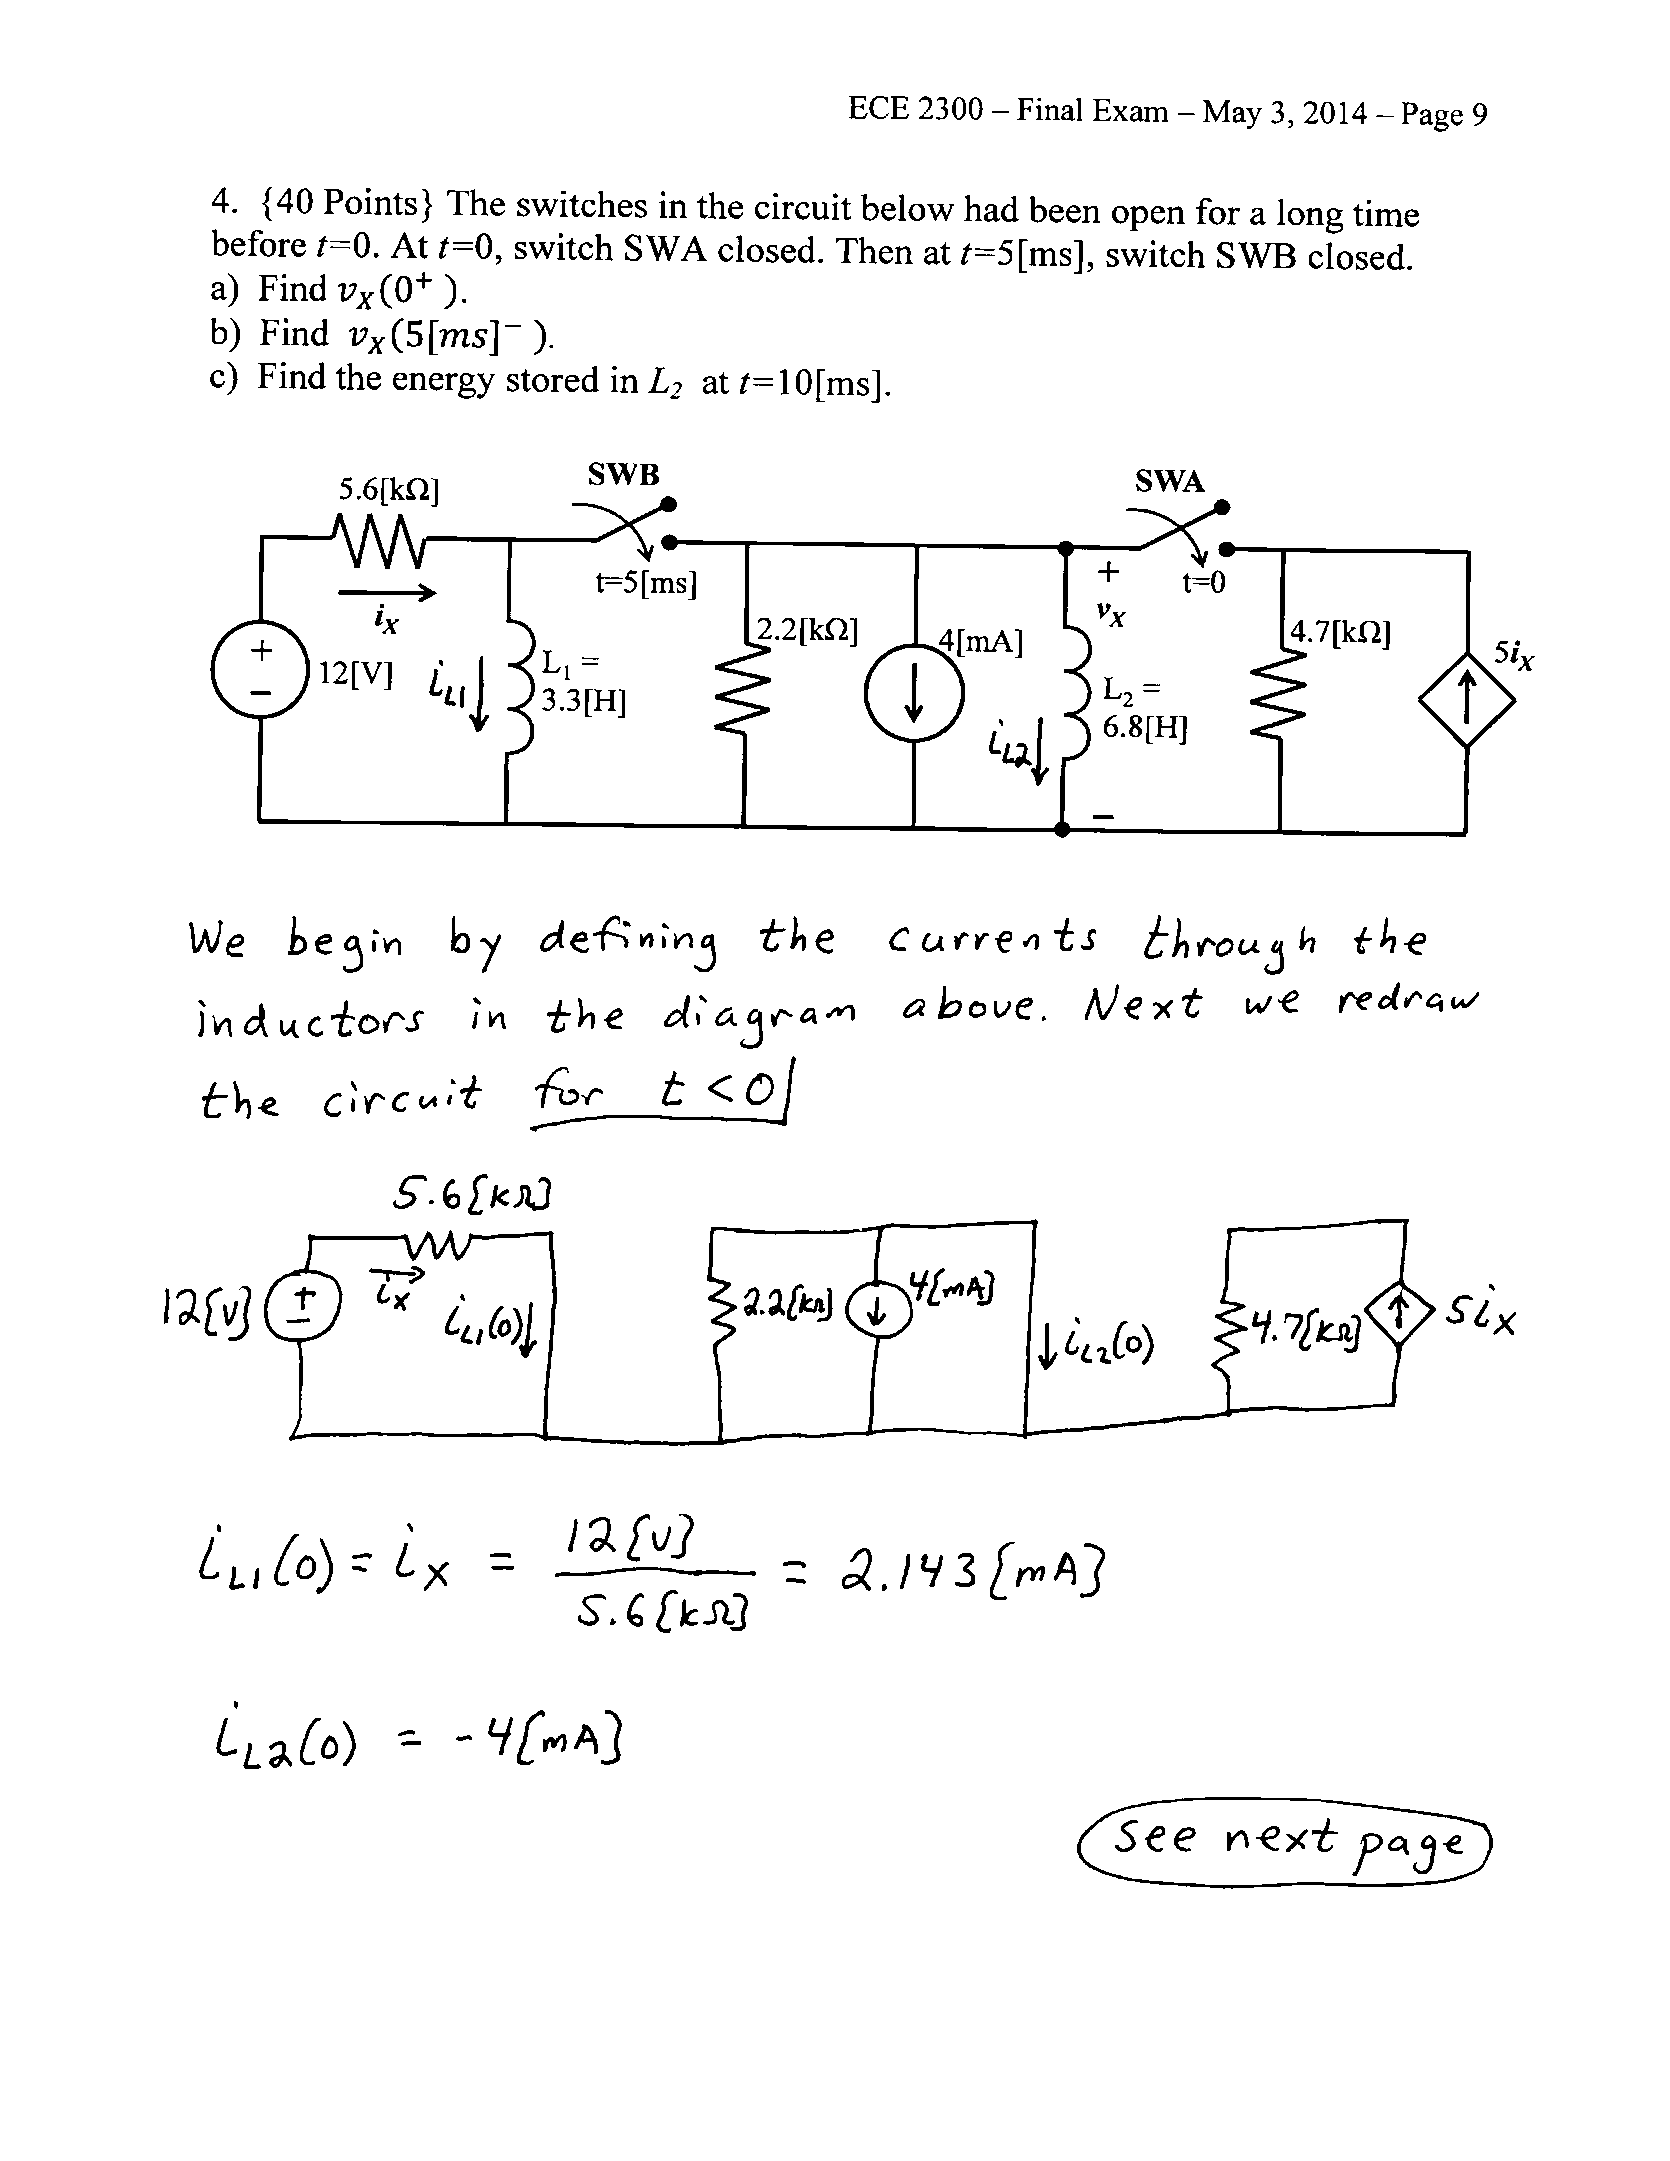 ECE 2300 – Final Exam – May 3, 2014 – Page 9
4. {40 Points} The switches in the circuit below had been open for a long time
before t=0. At t=0, switch SWA closed. Then at t=5[ms], switch SWB closed.
a) Find vX(0+ ).
b) Find vX(5[ms]− ).
c) Find the energy stored in L2 at t=10[ms].
5.6[kΩ]
SWB
SWA
t=5[ms]
t=0
iX
+
vX
−
2.2[kΩ]
4[mA]
4.7[kΩ]
5iX
+
−
12[V]
iL1
L1 =
3.3[H]
L2 =
6.8[H]
iL2
We begin by defining the currents through the
inductors in the diagram above. Next we redraw
the circuit for t<0
5.6[kΩ]
12[V]
+
−
iX
iL1(0)
2.2[kΩ]
4[mA]
iL2(0)
4.7[kΩ]
5iX
iL1(0) = iX = 12[V] / 5.6[kΩ] = 2.143[mA]
iL2(0) = -4[mA]
see next page